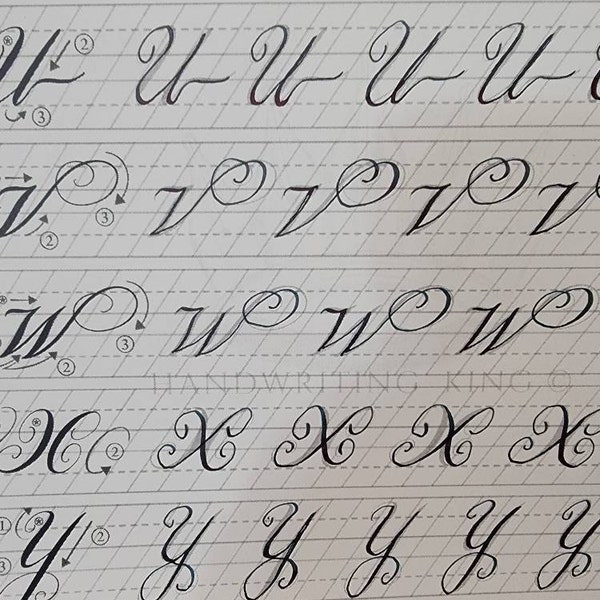 U ② U U U U
③
V V V V V
③
②
W W W W
③
②
HANDWRITING KING ©
X ② X X X X
① Y ② Y Y Y Y Y
③